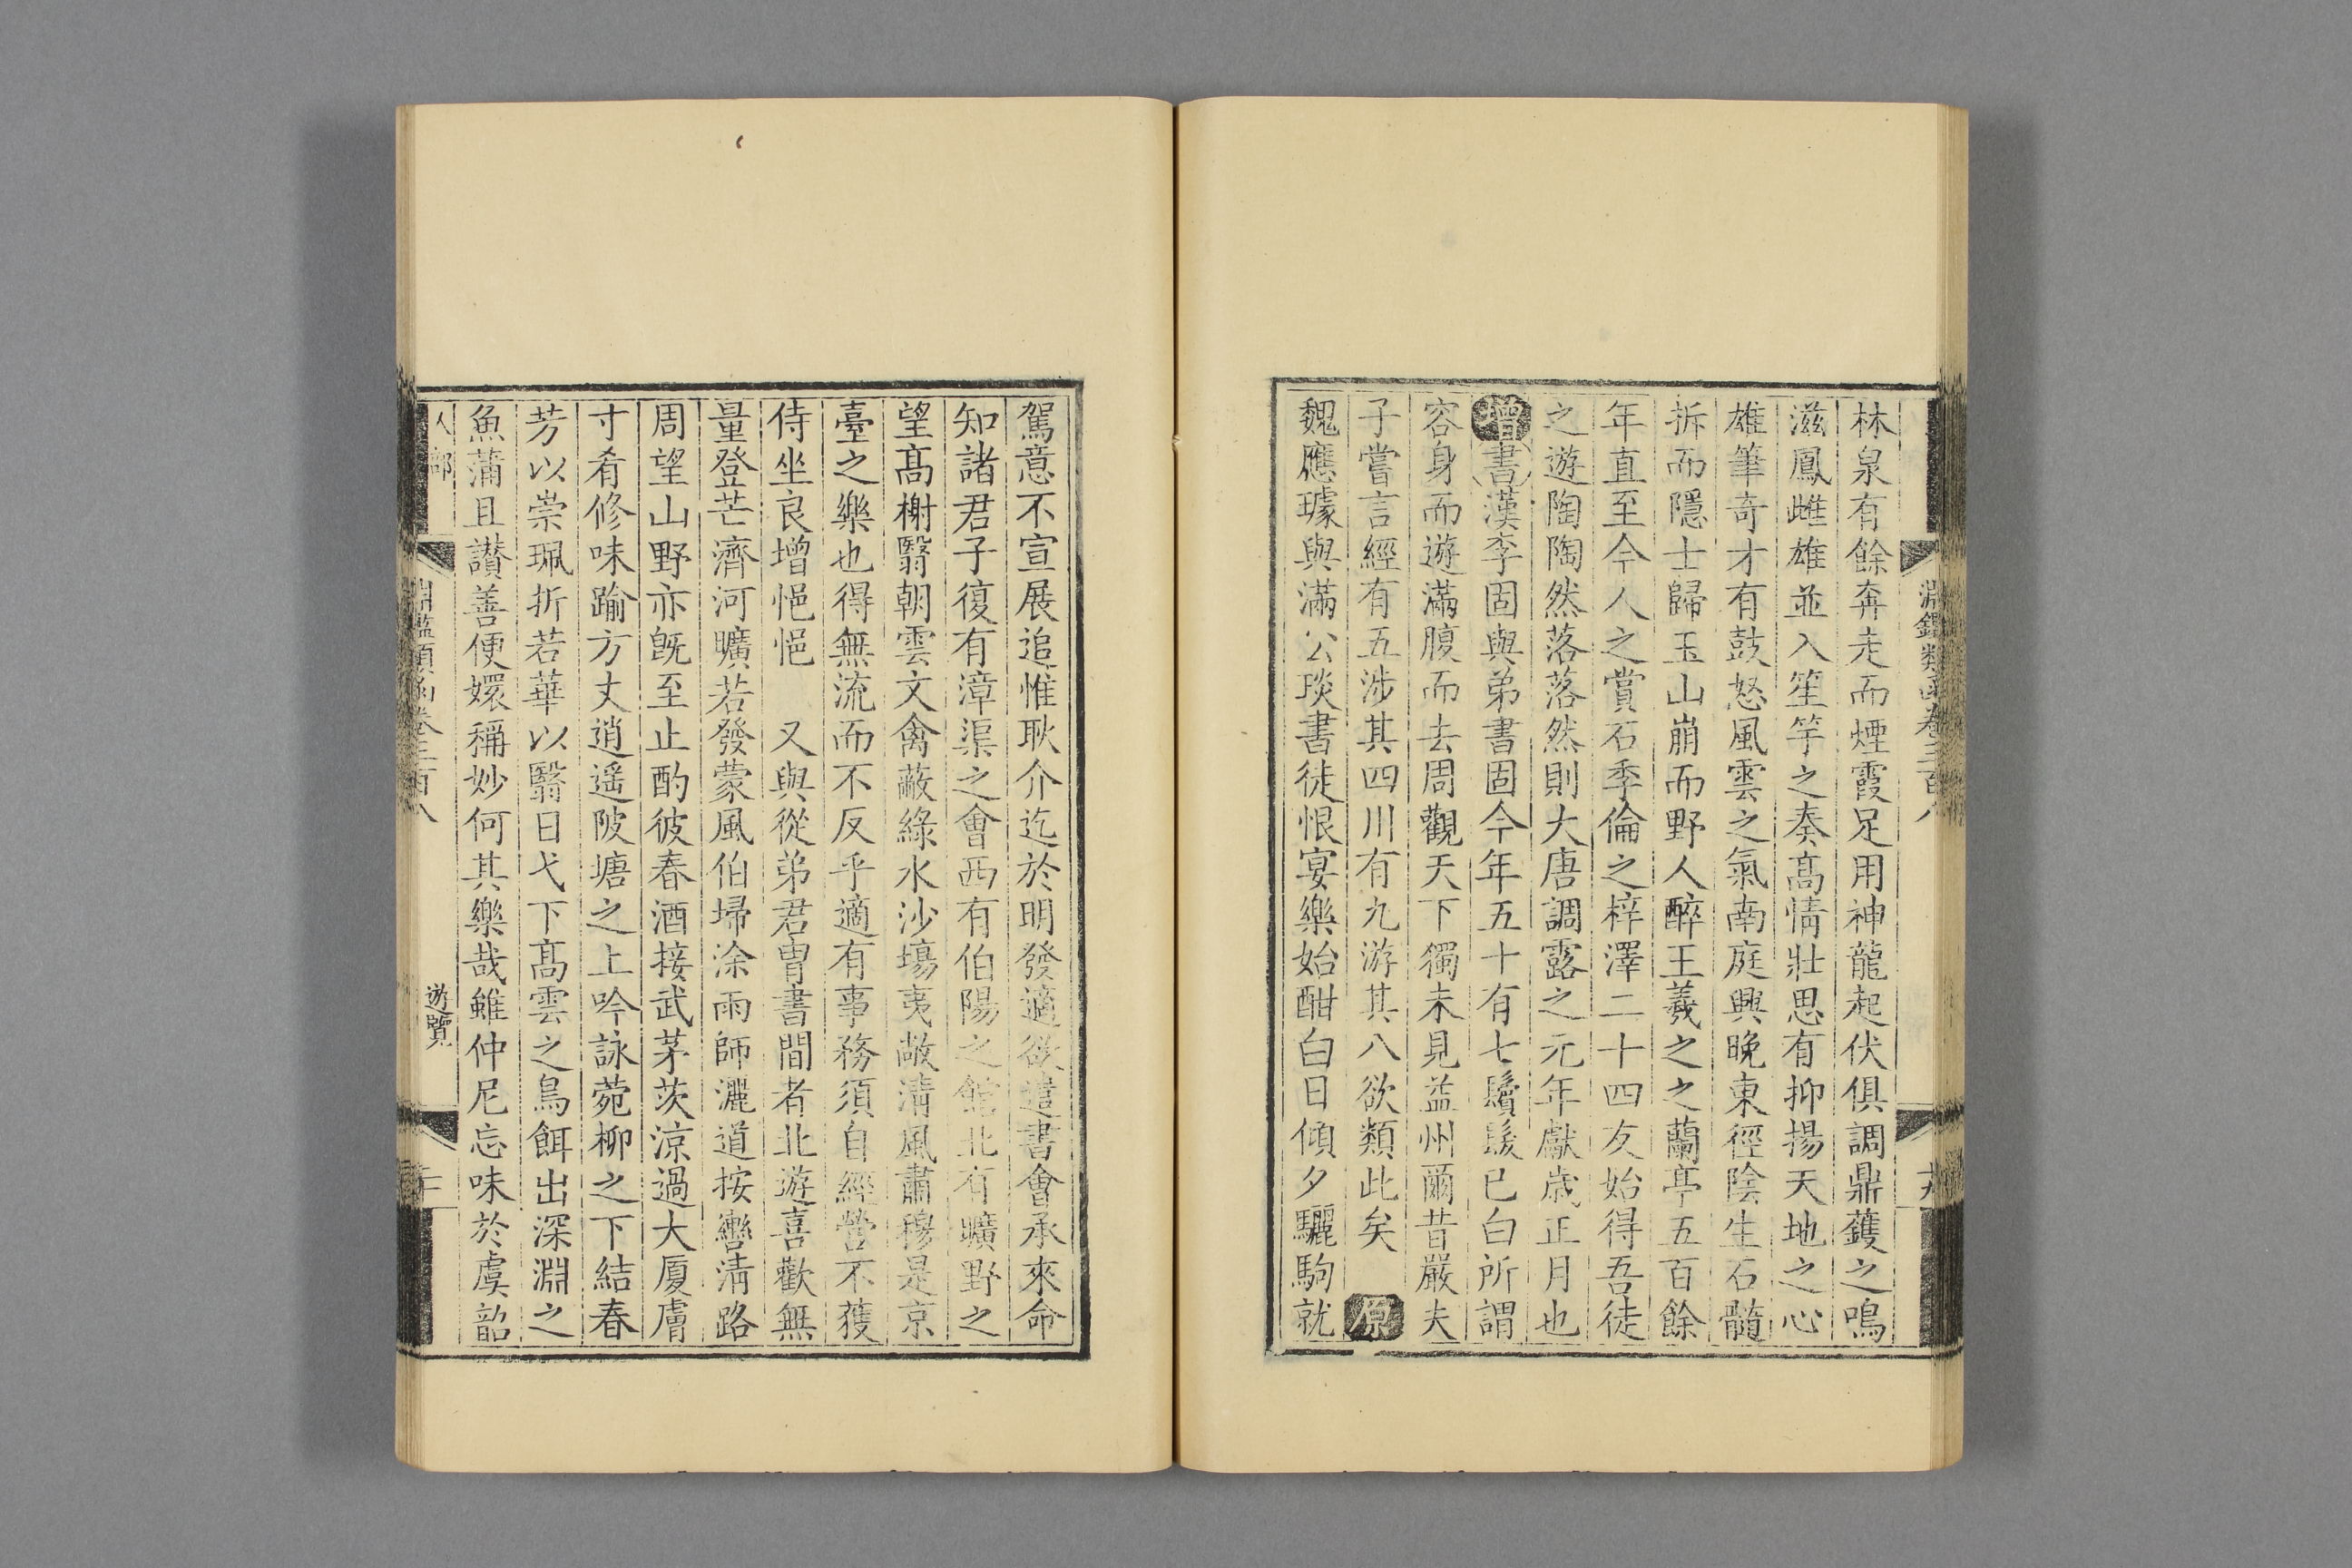 淵鑑類函卷三百八
林泉有餘奔走而煙霞足用神龍起伏俱調鼎鑊之鳴
滋鳳雌雄並入笙竽之奏高情壯思有抑揚天地之心
雄筆奇才有鼓怒風雲之氣南庭興晚東徑陰生石髓
拆而隱士歸玉山崩而野人醉王羲之之蘭亭五百餘
年直至今人之賞石季倫之梓澤二十四友始得吾徒
之遊陶陶然落落然則大唐調露之元年獻歲正月也
增書漢李固與弟書固今年五十有七鬢髮已白所謂
容身而遊滿腹而去周觀天下獨未見益州爾昔嚴夫
子嘗言經有五涉其四川有九游其八欲類此矣 原
魏應璩與滿公琰書徒恨宴樂始酣白日傾夕驪駒就
駕意不宣展追惟耿介迄於明發適欲遣書會承來命
知諸君子復有漳渠之會西有伯陽之館北有曠野之
望高榭翳朝雲文禽蔽綠水沙場夷敞清風肅穆是京
臺之樂也得無流而不反乎適有事務須自經營不獲
侍坐良增悒悒 又與從弟君胄書間者北遊喜歡無
量登芒濟河曠若發蒙風伯埽涂雨師灑道按轡清路
周望山野亦旣至止酌彼春酒接武茅茨涼過大厦膚
寸肴修味踰方丈逍遙陂塘之上吟詠菀柳之下結春
芳以崇珮折若華以翳日弋下高雲之鳥餌出深淵之
魚蒲且讃善便嬛稱妙何其樂哉雖仲尼忘味於虞韶
人部 淵鑑類函卷三百八 遊覽